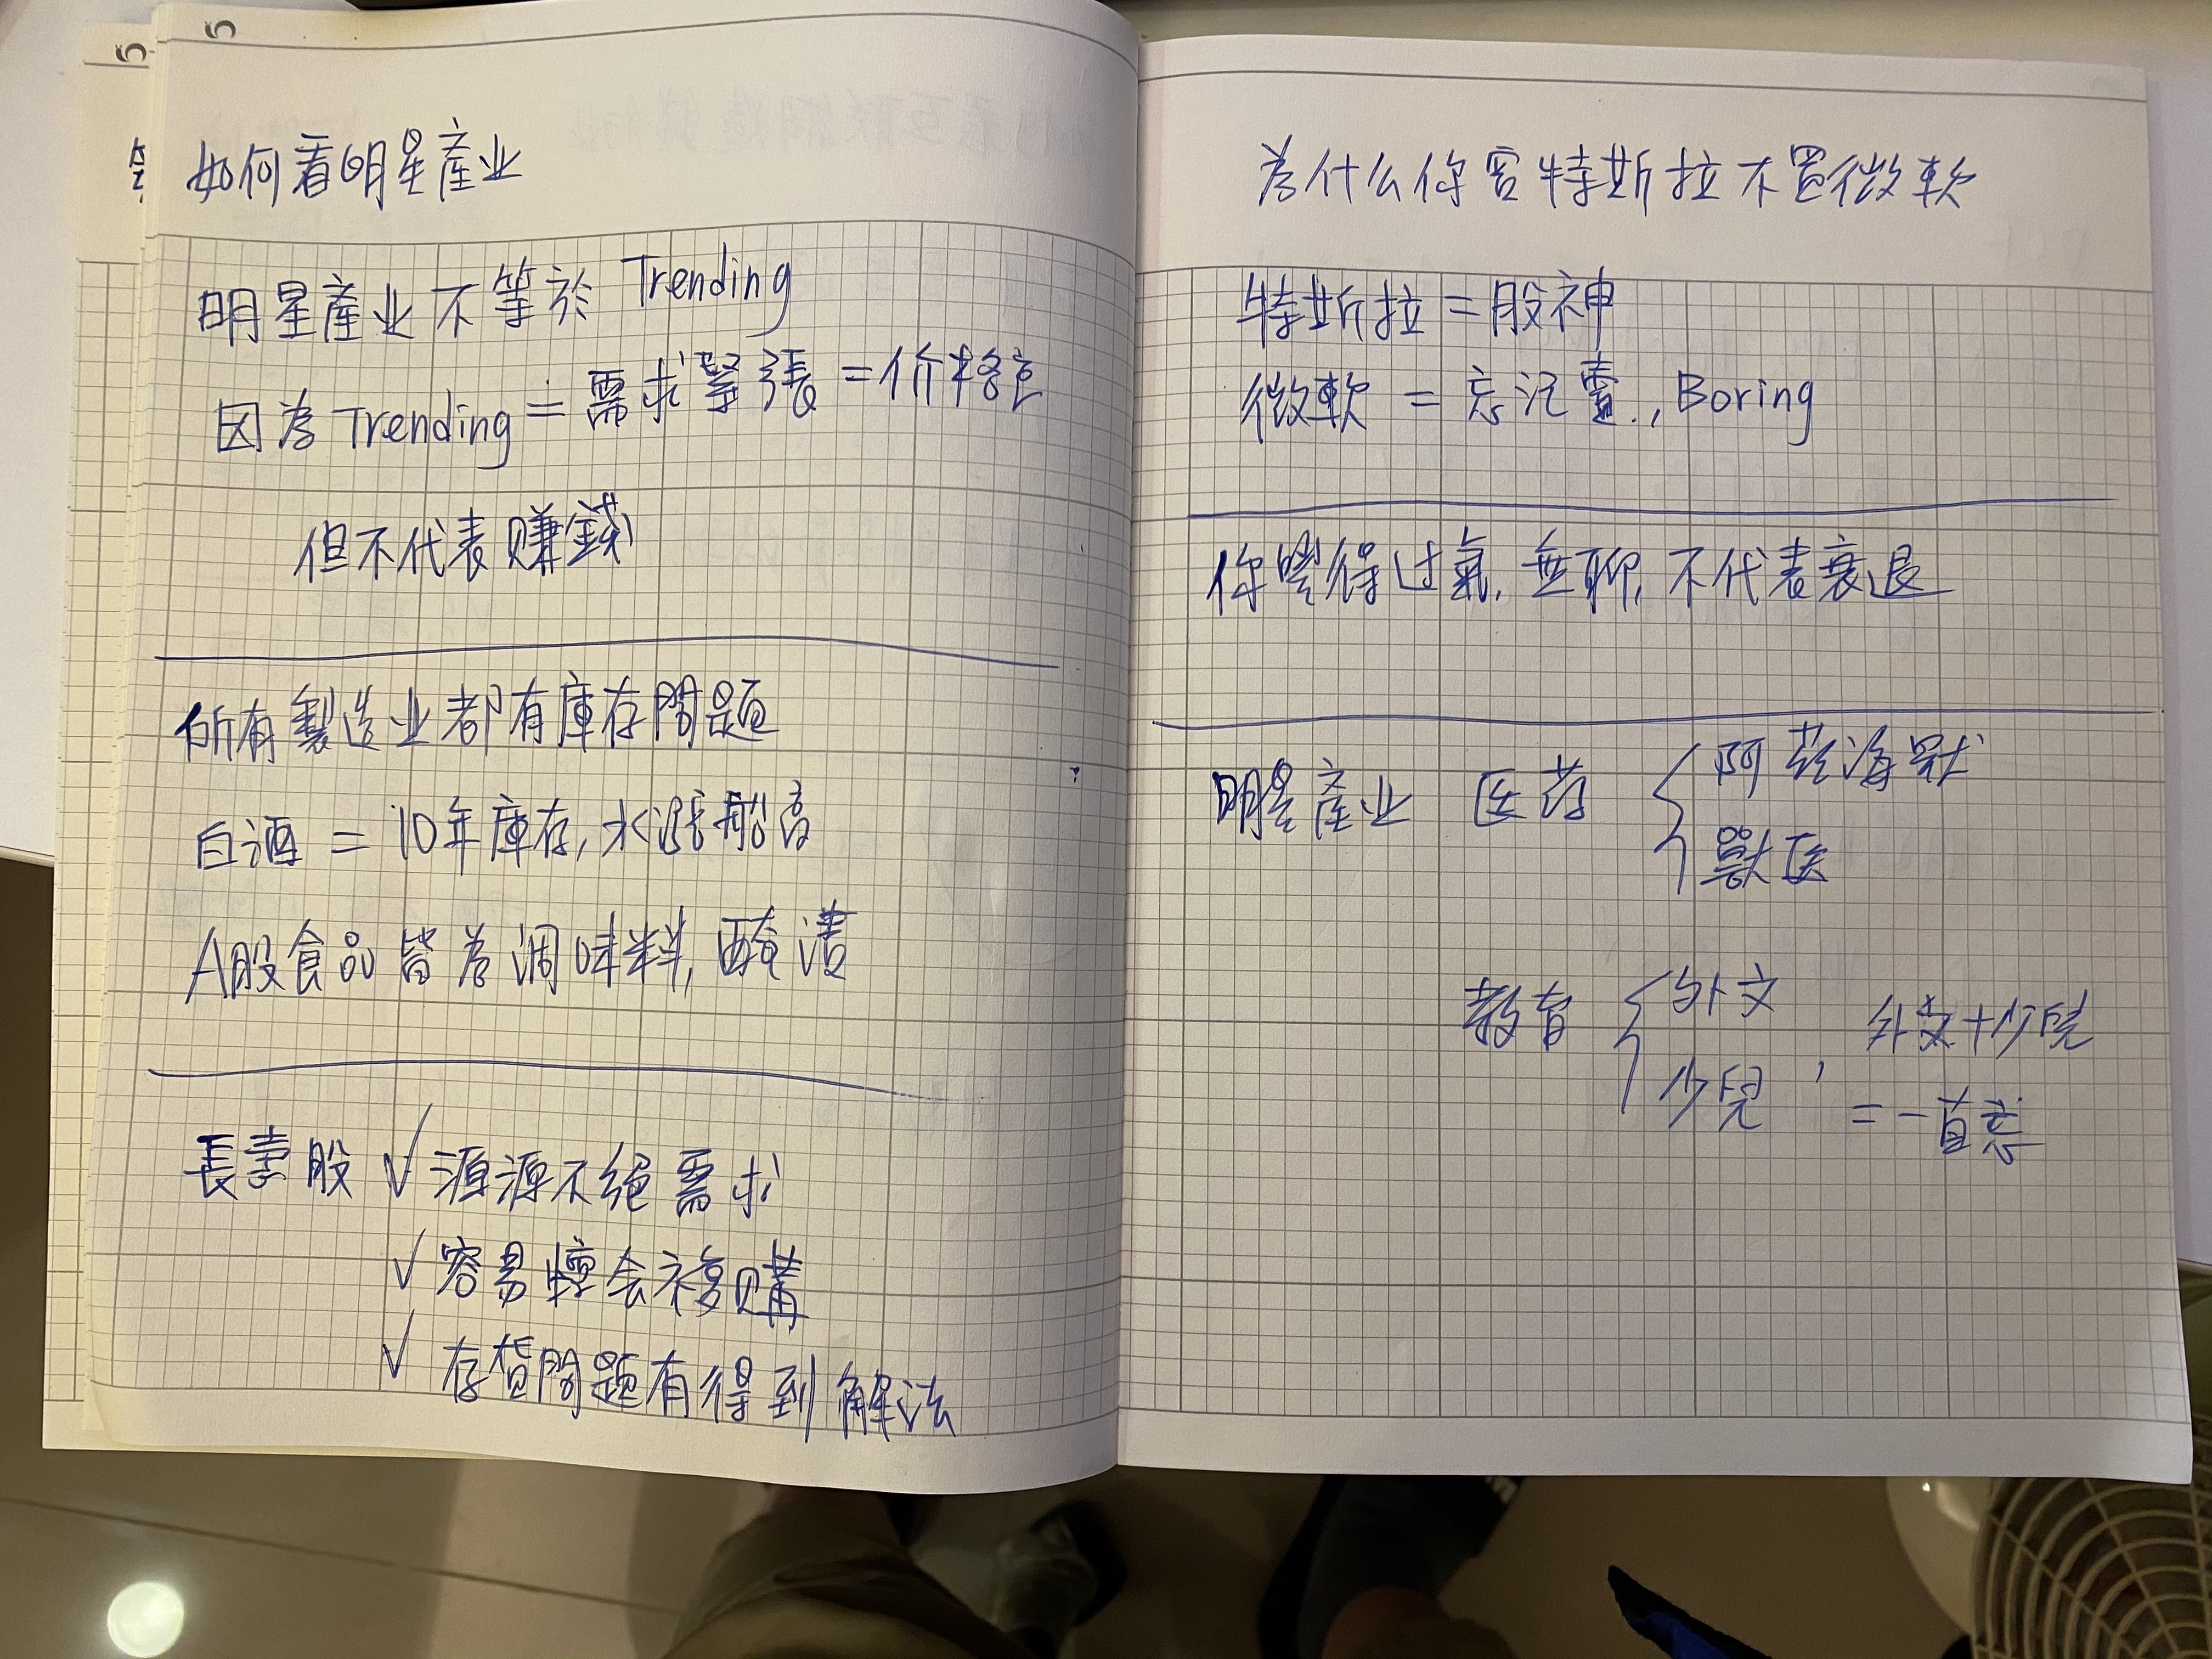 如何看明星產业
明星產业不等於 Trending
因為 Trending = 需求緊張 = 价格高
但不代表赚錢
所有製造业都有庫存問題
白酒 = 10年庫存, 水漲船高
A股食品皆為调味料, 醃漬
長壽股 √ 源源不绝需求
√ 容易懂会複购
√ 存貨問題有得到解决
為什么你害特斯拉不買微軟
特斯拉 = 股神
微軟 = 忘记賣, Boring
你覺得过氣, 無聊, 不代表衰退
明星產业 医药 阿茲海默
獸医
教育 外文
少兒, 外文+少兒
= 一直